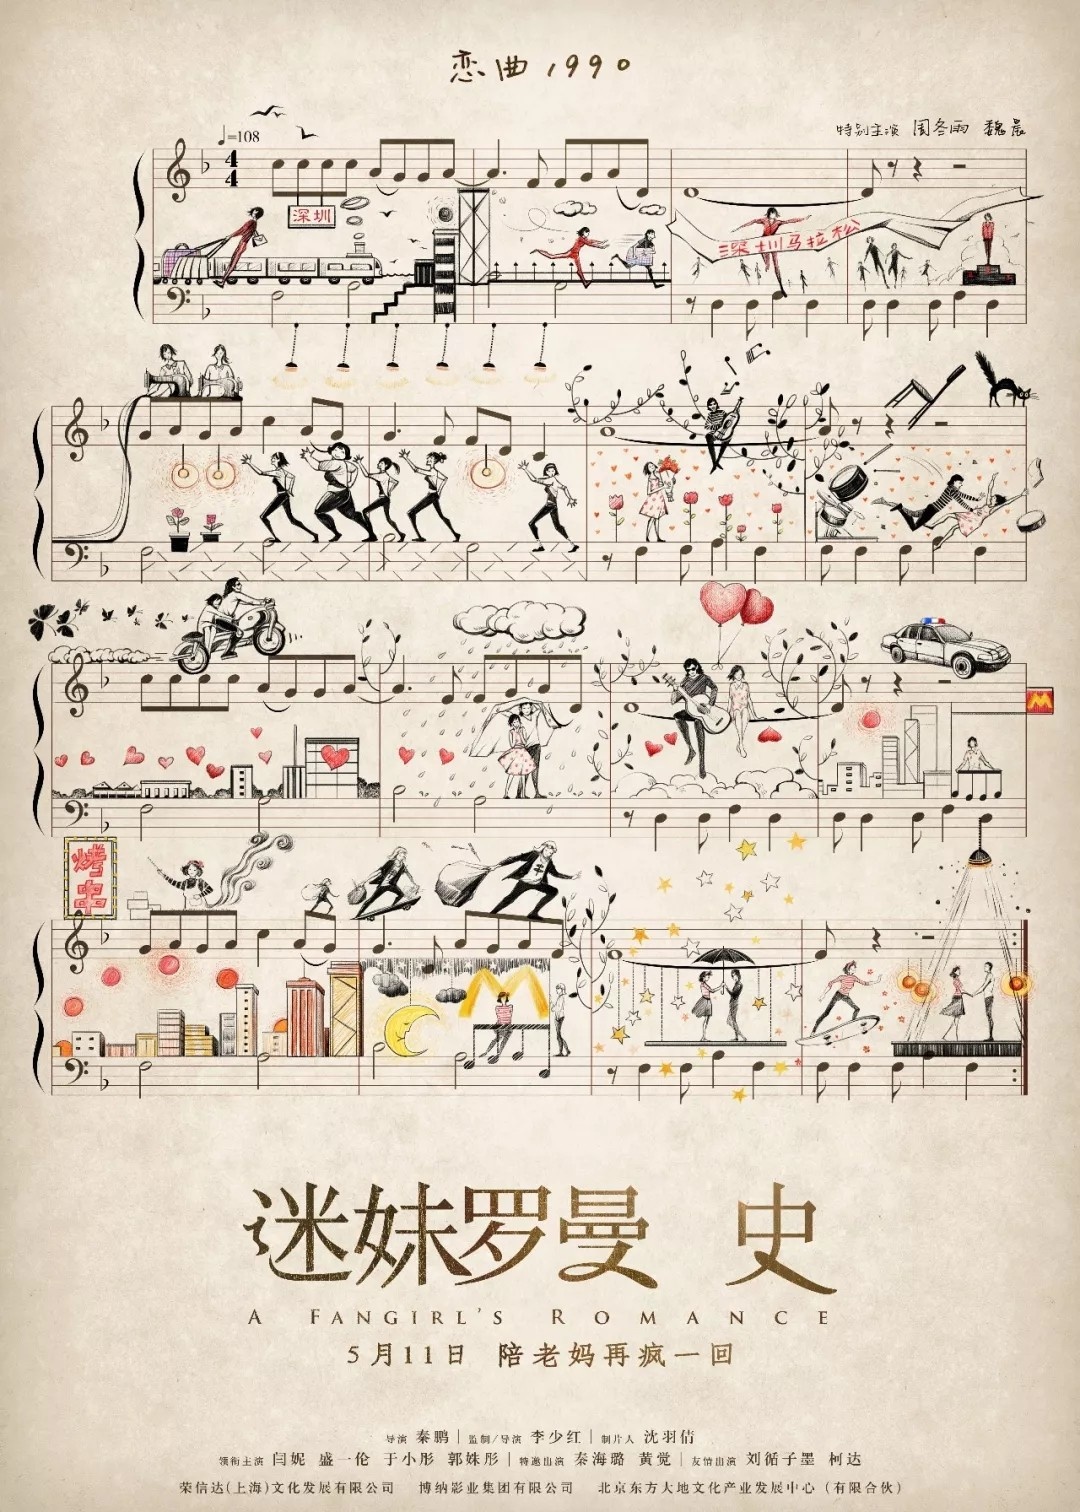 恋曲1990
特别主演 周冬雨 魏晨
♩=108
4
4
深圳
深圳马拉松
M
烤串
M
迷妹罗曼 史
A FANGIRL'S ROMANCE
5月11日 陪老妈再疯一回
导演 秦鹏 | 监制/导演 李少红 | 制片人 沈羽倩
领衔主演 闫妮 盛一伦 于小彤 郭姝彤 | 特邀出演 秦海璐 黄觉 | 友情出演 刘循子墨 柯达
荣信达(上海)文化发展有限公司 博纳影业集团有限公司 北京东方大地文化产业发展中心（有限合伙）